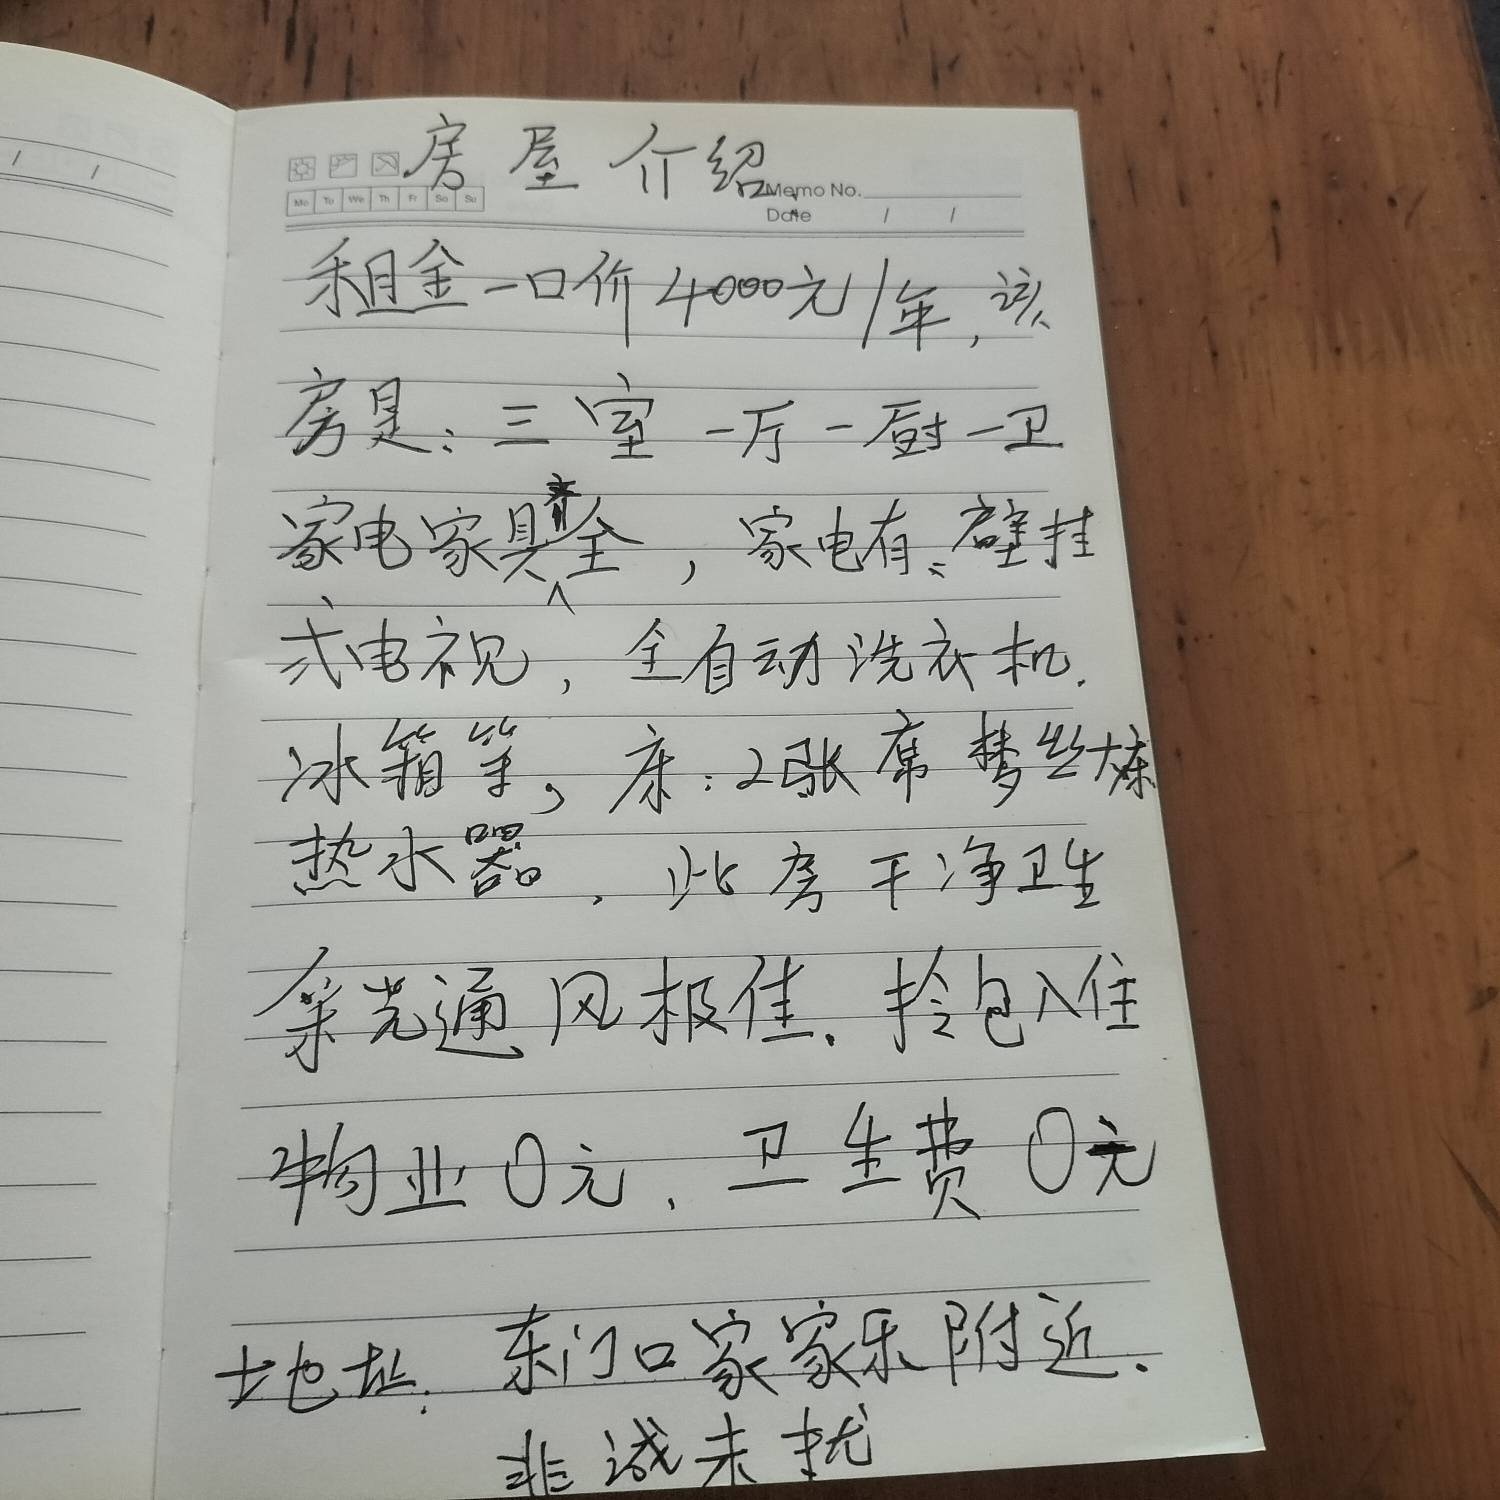 房屋介绍
Mo Tu We Th Fr Sa Su
Memo No.
Date / /
租金一口价4000元/年,该
房是:三室一厅一厨一卫
家电家具齐全,家电有:壁挂
式电视,全自动洗衣机.
冰箱等,床:2张席梦丝大床
热水器,此房干净卫生
采光通风极佳.拎包入住
物业0元,卫生费0元
地址.东门口家家乐附近.
非诚未扰